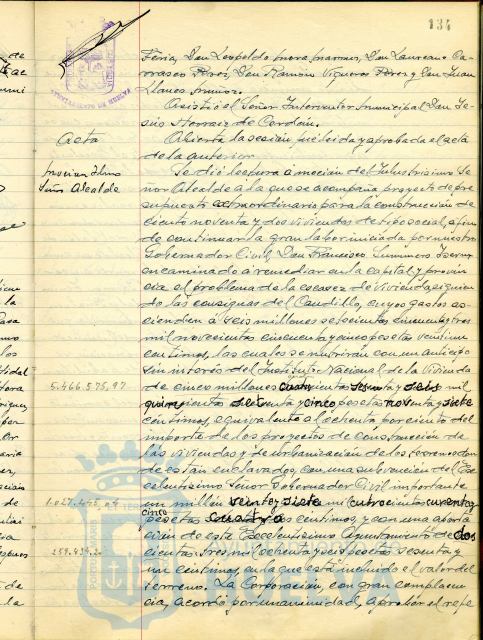 134
Feria, Don Leopoldo Mora Marmer, Don Laureano Ca-
rrasco Pérez, Don Ramón Vigueras Pérez y Don Juan
Llanos Muñoz.
Asistió el Señor Interventor Municipal Don Je-
sús Herraiz de Cerdán.
Acta
Abierta la sesión, fué leída y aprobada el acta
de la anterior.
Moción Ilmo
Señor Alcalde
Se dió lectura a moción del Ilustrísimo Se-
ñor Alcalde a la que se acompaña proyecto de pre-
supuesto extraordinario para la construcción de
ciento noventa y dos viviendas de tipo social, a fin
de continuar la gran labor iniciada por nuestro
Gobernador Civil, Don Francisco Summers Isern
encaminado a remediar en la capital y provin
cia el problema de la escasez de vivienda, siguien
do las consignas del Caudillo, cuyos gastos as-
cienden a seis millones setecientas cincuenta y tres
mil novecientas cincuenta y cinco pesetas veintiun
centimos, las cuales se nutrirán con un anticipo
sin interés del Instituto Nacional de la Vivienda
5.466.575,97
de cinco millones cuatrocientas sesenta y seis mil
quinientas setenta y cinco pesetas noventa y siete
centimos, equivalente al ochenta por ciento del
importe de los proyectos de construcción de
las viviendas y de urbanización de los terrenos don
de están enclavados, con una subvención del Ex-
celentísimo Señor Gobernador Civil importante
1.027.445,04
un millón veinte y siete mil cutrocientas curenta y
cinco
pesetas cuatro centimos, y con una aporta
ción de este Excelentísimo Ayuntamiento de dos
cientas tres mil ochenta y seis pesetas sesenta y
un centimos, en la que está incluido el valor del
terreno. La Corporación, con gran complacen-
cia, acordó por unanimidad, aprobar el refe